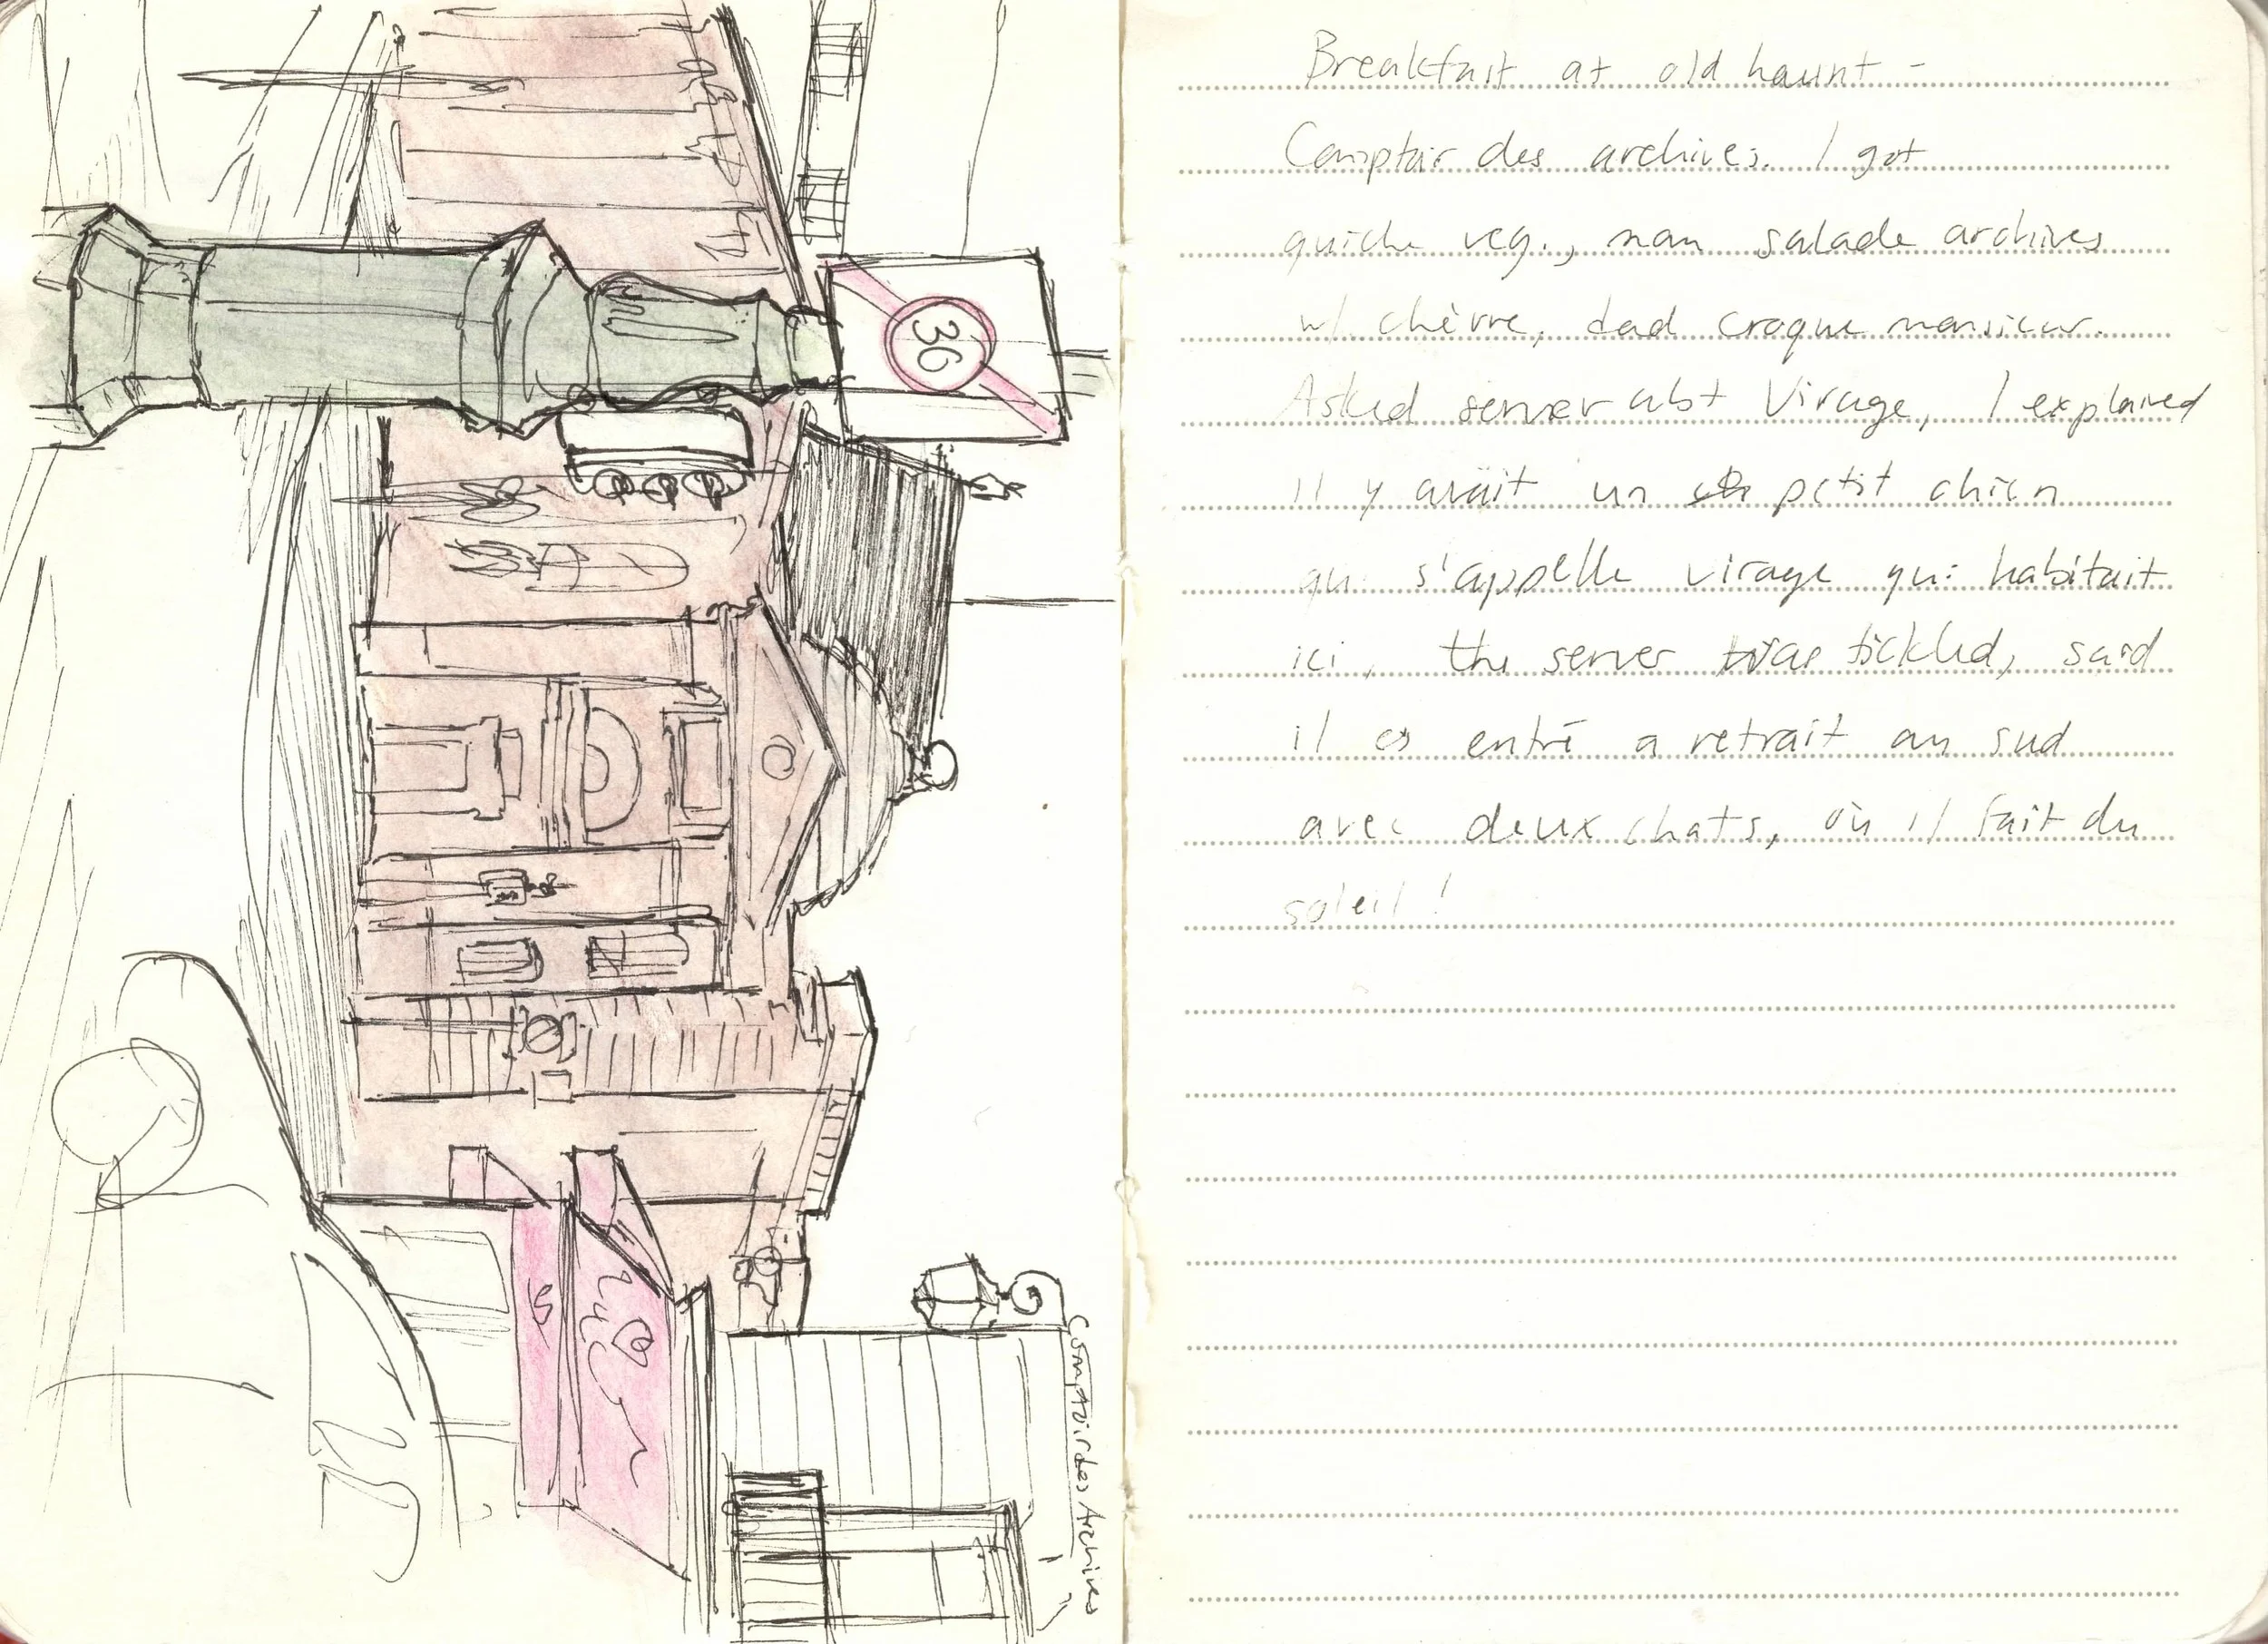 30
Comptoir des Archives
Breakfast at old haunt -
Comptoir des archives. I got
quiche veg., mom salade archives
w/ chèvre, dad croque monsieur.
Asked server abt Virage, I explained
il y avait un petit chien
qui s'appelle virage qui habitait
ici, the server was tickled, said
il es entré a retrait au sud
avec deux chats, où il fait du
soleil !